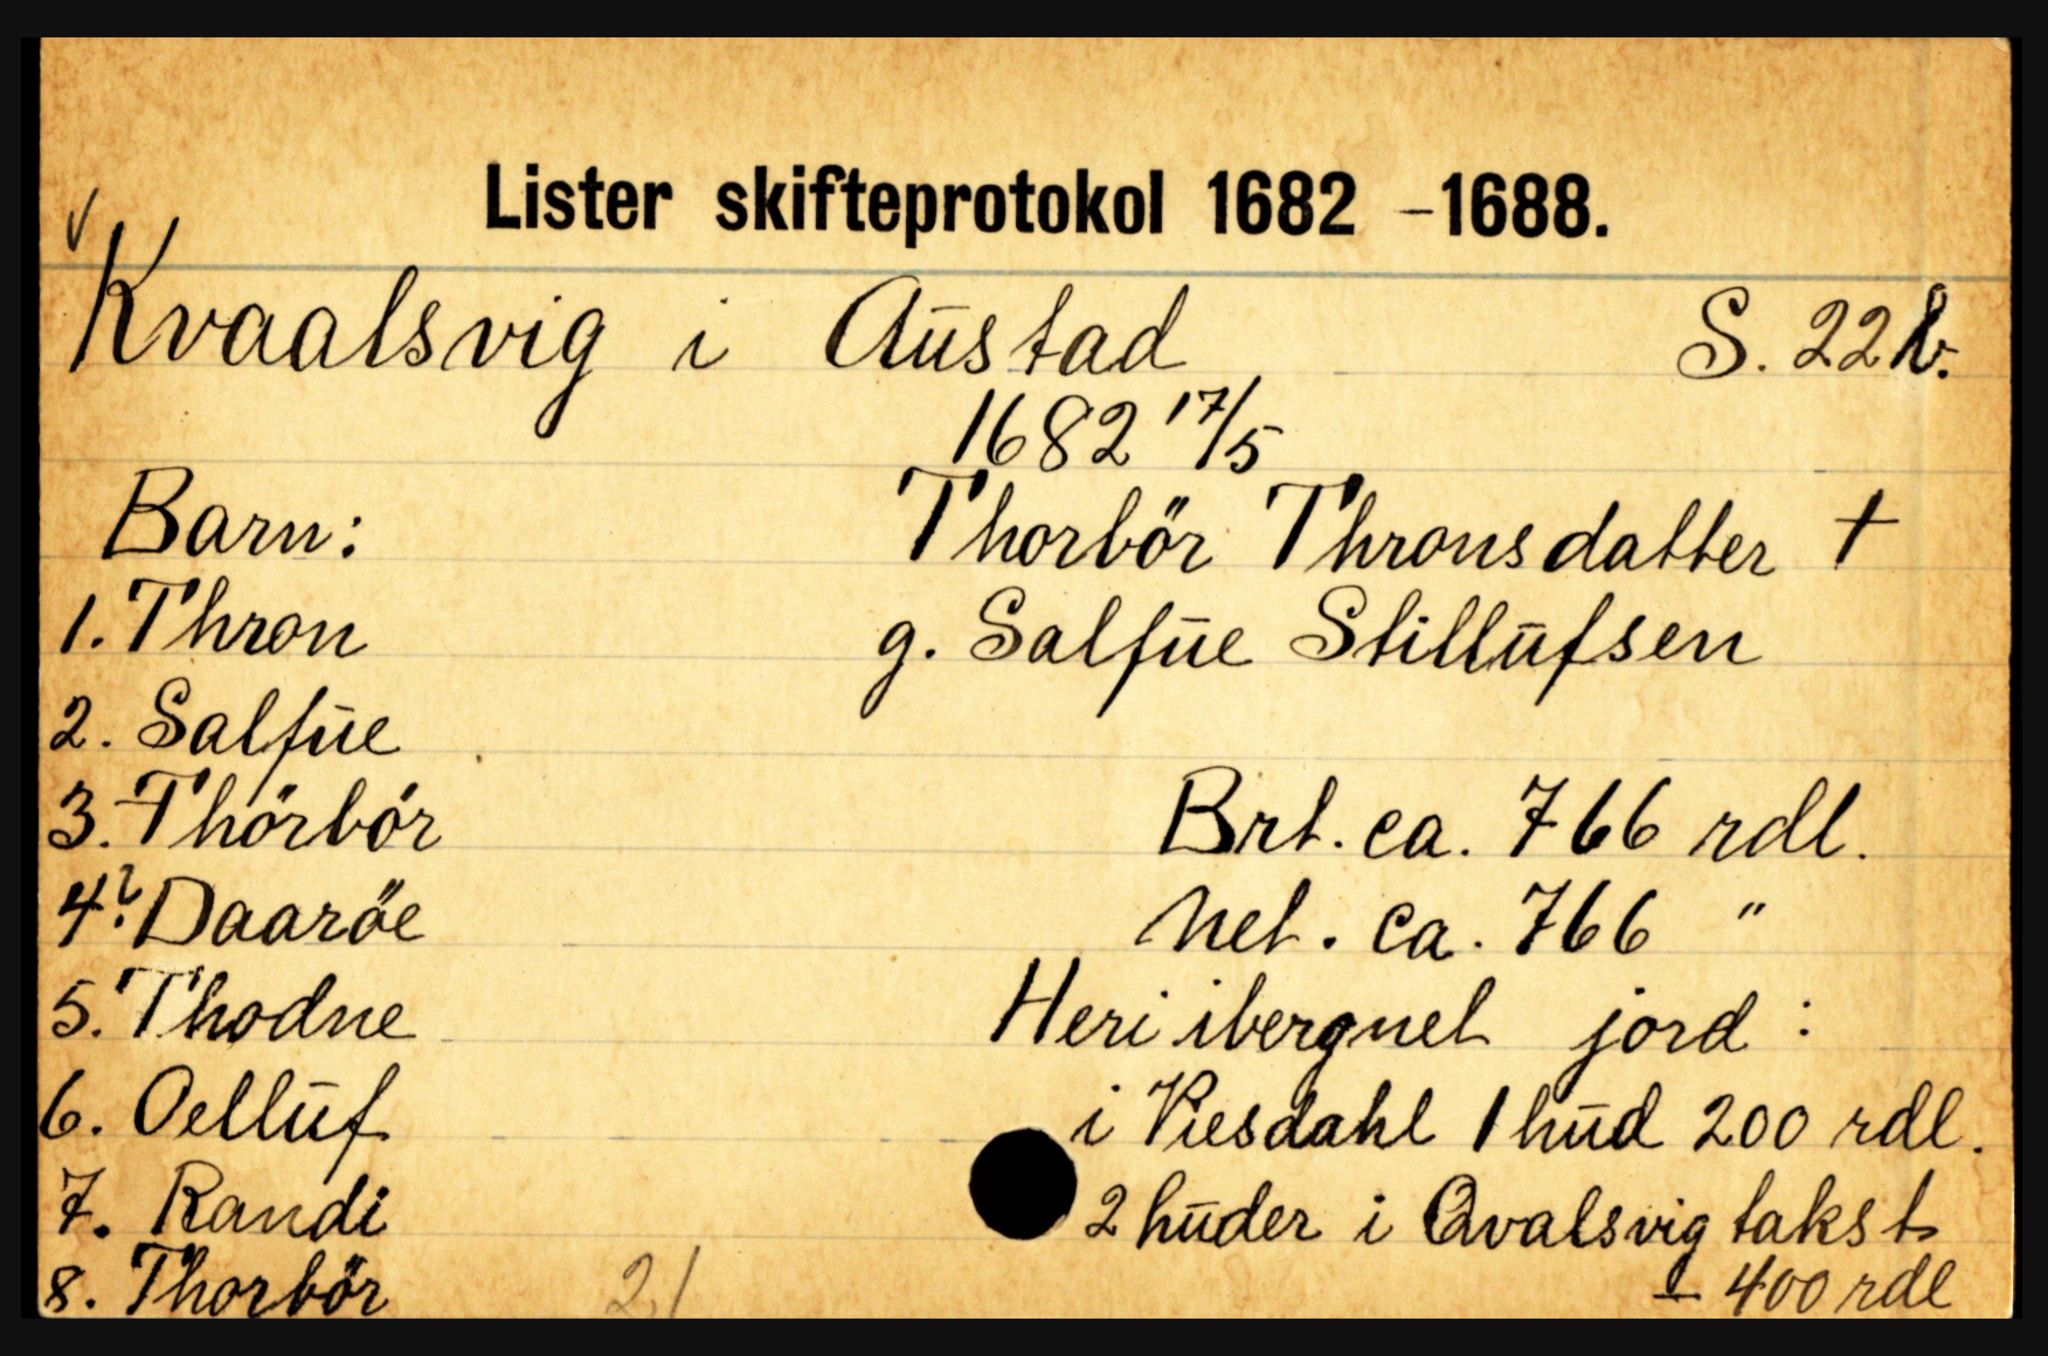 Lister skifteprotokol 1682 – 1688.
Kvaalsvig i Austad S. 22
1682 17/5
Barn: Thorbör Thronsdatter †
1. Thron g. Salfue Stillufsen
2. Salfue
3. Thörbör Brt. ca. 766 rdl.
4? Daaröe Net. ca. 766 "
5. Thodne Heri ibergnet jord :
6. Oelluf i Viesdahl 1 hud 200 rdl.
7. Randi 2 huder i Qvalsvig takst
8. Thorbör 21 – 400 rdl